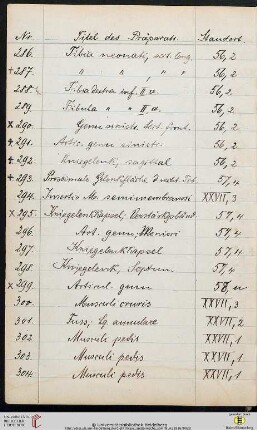 Nr. Titel des Präparats Standort
286. Tibia neonati, sect. long. 56, 2
+ 287. " " " " 56, 2
288. Tibia dextra inf. II a. 56, 2
289. Fibula " " II a. 56, 2
x 290. Genu sect. front. 56, 2
+ 291. Artic. genu sinistr. 56, 2
+ 292. Kniegelenk, sagittal 56, 2
+ 293. Proximale Gelenkfläche d. 57, 4
294. Insertio M. semimembranosi XXVII, 3
x 295. Kniegelenkkapsel; 57, 4
296. Art. genu; Menisci 57, 4
297. Kniegelenkkapsel 57, 4
298. Kniegelenk, Septum 57, 4
x 299. Articul. genu 58,
300. Musculi cruris XXVII, 3
301. Fuss; Lg. annulare XXVII, 2
302. Musculi pedis XXVII, 1
303. Musculi pedis XXVII, 1
304. Musculi pedis XXVII, 1
Universitätsbibliothek Heidelberg